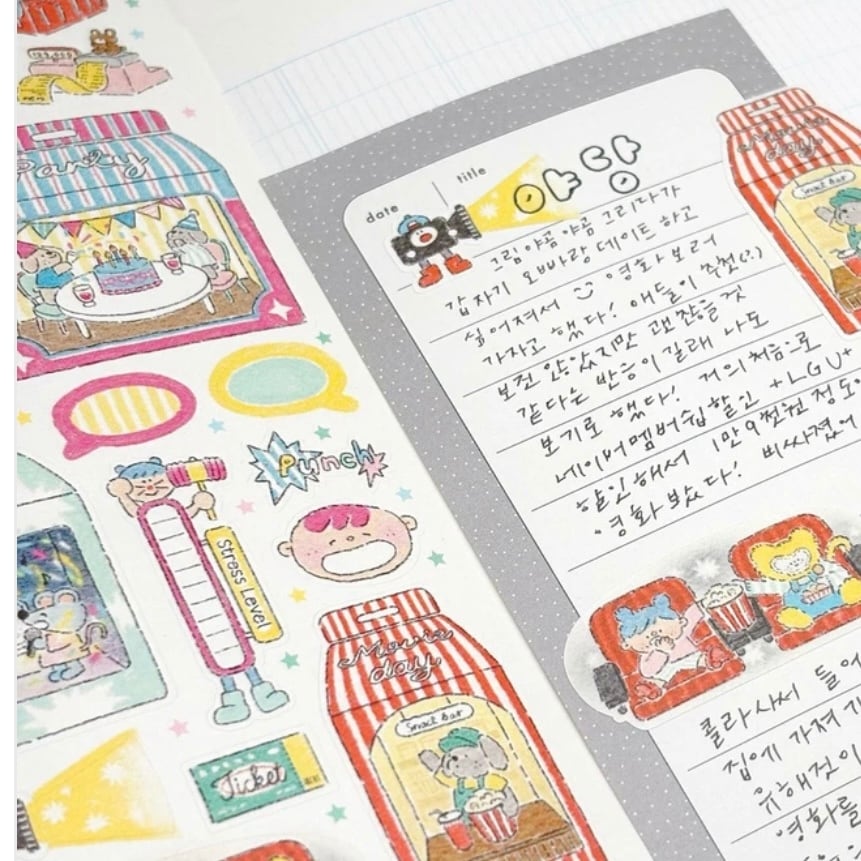 Party
Punch
Stress Level
Movie
day
Snack bar
Ticket
date
title
야당
Movie
day
Snack bar
그림 야곰야곰 그리다가
갑자기 오빠랑 데이트 하고
싶어져서 영화 보러
가자고 했다! 애들이 추천(?)
보진 않았지만 괜찮을 것
같다는 반응이길래 나도
보기로 했다! 거의 처음으로
네이버멤버쉽할인 + LGU+
할인해서 1만 9천원 정도
영화 봤다! 비싸졌어
콜라 사서 들어
집에 가져가
유해진이
영화를